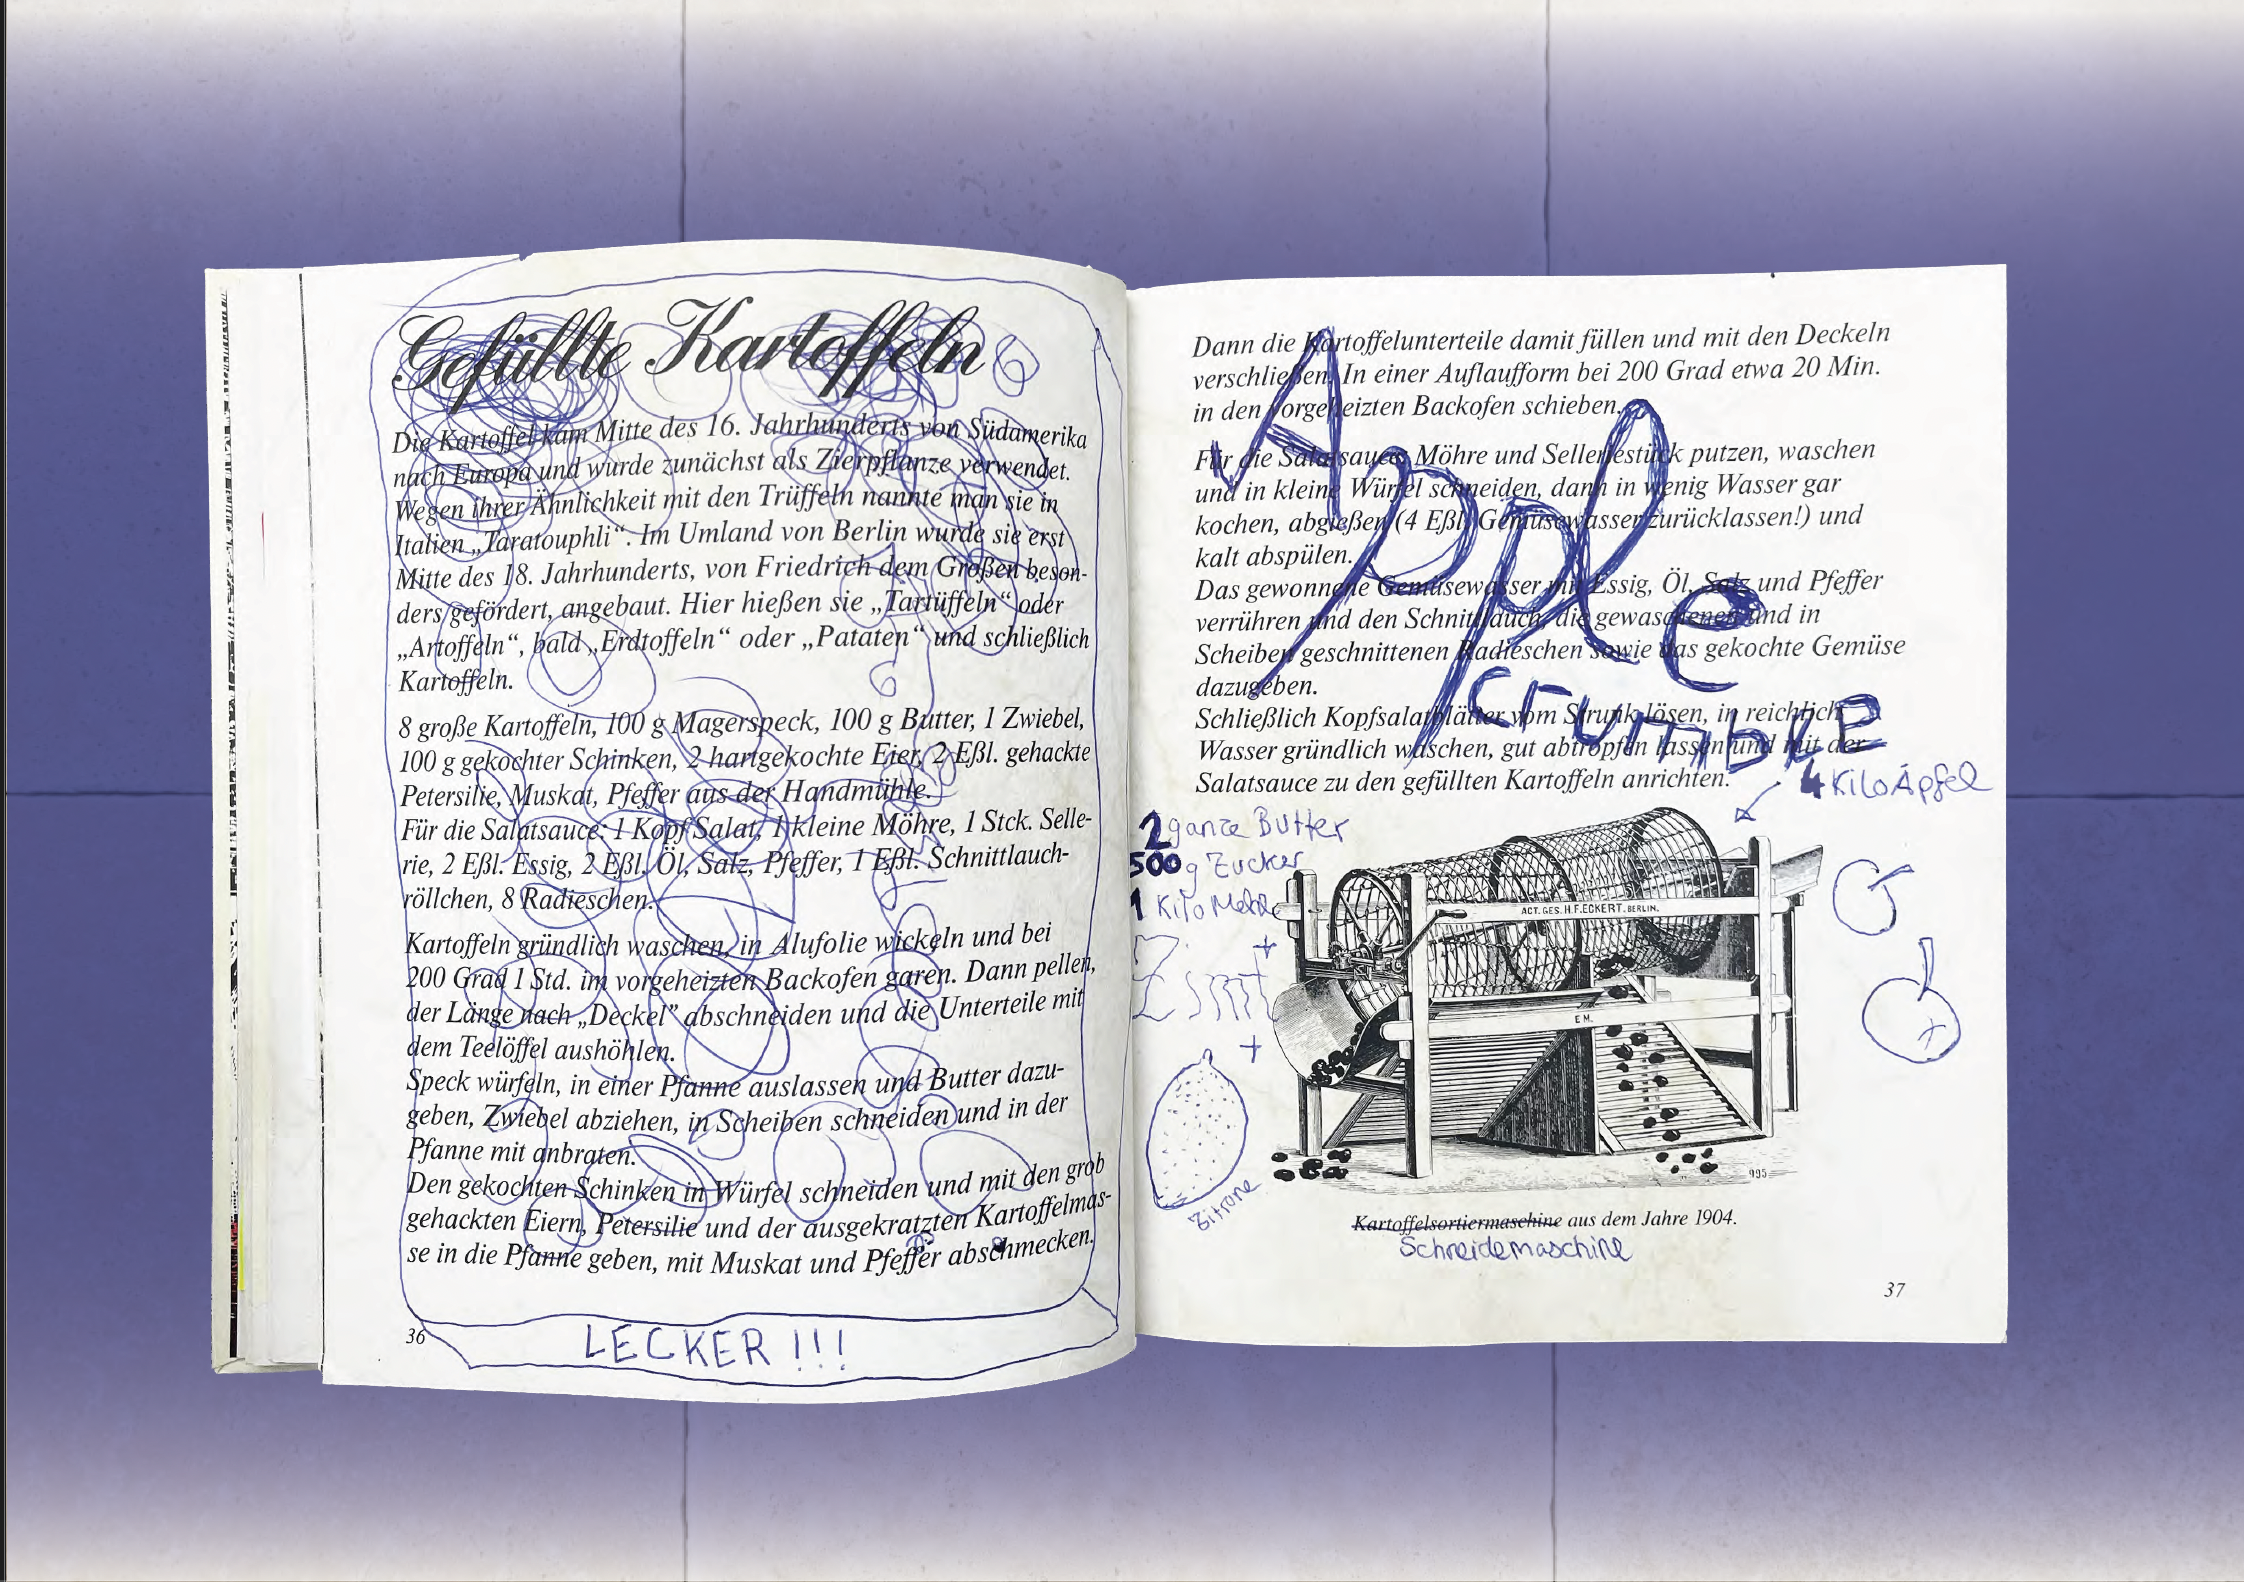 Gefüllte Kartoffeln
Die Kartoffel kam Mitte des 16. Jahrhunderts von Südamerika
nach Europa und wurde zunächst als Zierpflanze verwendet.
Wegen ihrer Ähnlichkeit mit den Trüffeln nannte man sie in
Italien „Taratouphli“. Im Umland von Berlin wurde sie erst
Mitte des 18. Jahrhunderts, von Friedrich dem Großen beson-
ders gefördert, angebaut. Hier hießen sie „Tartüffeln“ oder
„Artoffeln“, bald „Erdtoffeln“ oder „Pataten“ und schließlich
Kartoffeln.
8 große Kartoffeln, 100 g Magerspeck, 100 g Butter, 1 Zwiebel,
100 g gekochter Schinken, 2 hartgekochte Eier, 2 Eßl. gehackte
Petersilie, Muskat, Pfeffer aus der Handmühle.
Für die Salatsauce: 1 Kopf Salat, 1 kleine Möhre, 1 Stck. Selle-
rie, 2 Eßl. Essig, 2 Eßl. Öl, Salz, Pfeffer, 1 Eßl. Schnittlauch-
röllchen, 8 Radieschen.
Kartoffeln gründlich waschen, in Alufolie wickeln und bei
200 Grad 1 Std. im vorgeheizten Backofen garen. Dann pellen,
der Länge nach „Deckel” abschneiden und die Unterteile mit
dem Teelöffel aushöhlen.
Speck würfeln, in einer Pfanne auslassen und Butter dazu-
geben, Zwiebel abziehen, in Scheiben schneiden und in der
Pfanne mit anbraten.
Den gekochten Schinken in Würfel schneiden und mit den grob
gehackten Eiern, Petersilie und der ausgekratzten Kartoffelmas-
se in die Pfanne geben, mit Muskat und Pfeffer abschmecken.
36
LECKER !!!
Dann die Kartoffelunterteile damit füllen und mit den Deckeln
verschließen. In einer Auflaufform bei 200 Grad etwa 20 Min.
in den vorgeheizten Backofen schieben.
Für die Salatsauce: Möhre und Selleriestück putzen, waschen
und in kleine Würfel schneiden, dann in wenig Wasser gar
kochen, abgießen (4 Eßl. Gemüsewasser zurücklassen!) und
kalt abspülen.
Das gewonnene Gemüsewasser mit Essig, Öl, Salz und Pfeffer
verrühren und den Schnittlauch, die gewaschenen und in
Scheiben geschnittenen Radieschen sowie das gekochte Gemüse
dazugeben.
Schließlich Kopfsalatblätter vom Strunk lösen, in reichlich
Wasser gründlich waschen, gut abtropfen lassen und mit der
Salatsauce zu den gefüllten Kartoffeln anrichten.
Apple
CrumbLE
4 Kilo Äpfel
2 ganze Butter
500 g Zucker
1 Kilo Mehl
+
Zimt
+
Zitrone
ACT. GES. H.F. ECKERT. BERLIN.
E M.
995
Kartoffelsortiermaschine aus dem Jahre 1904.
Schneidemaschine
37